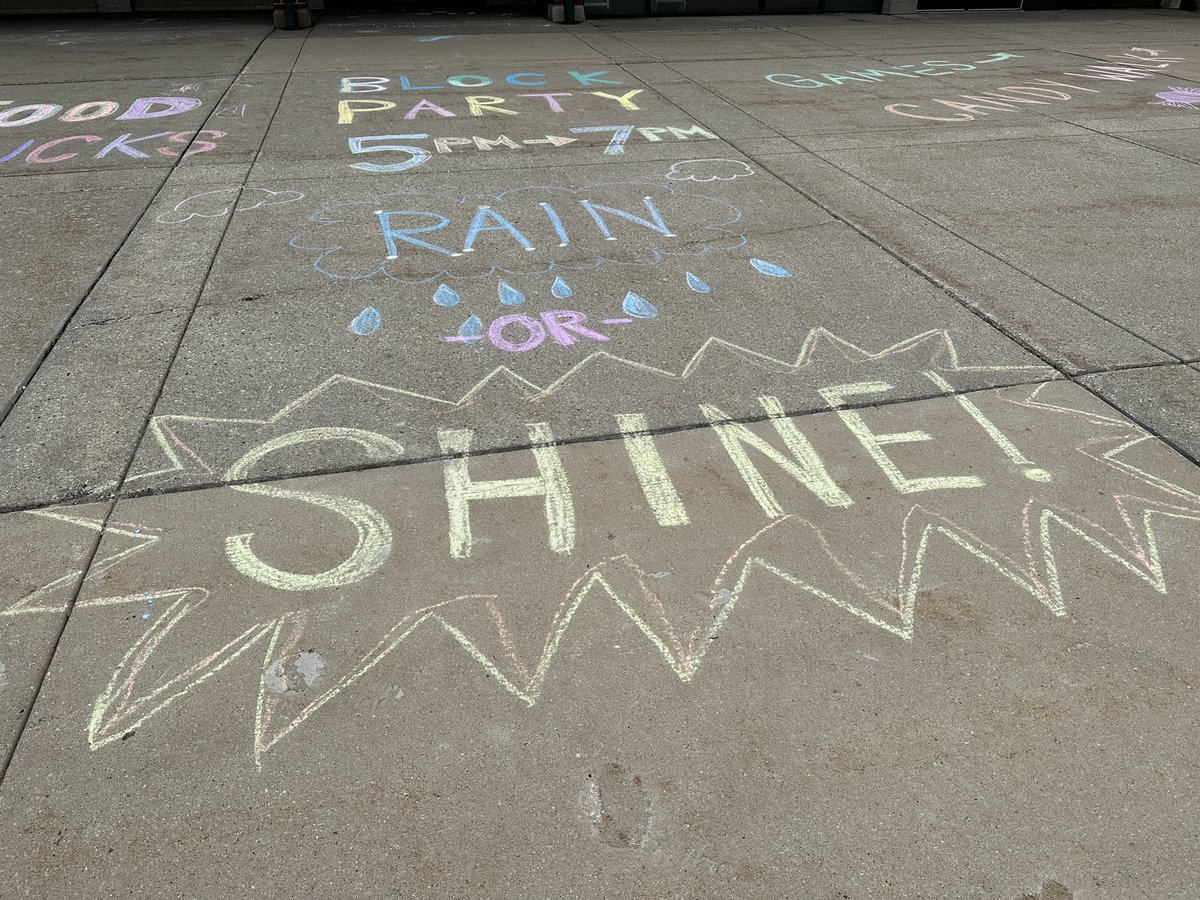 FOOD
UCKS
BLOCK
PARTY
5PM→7PM
RAIN
-OR-
SHINE!
GAMES
CANDY WALK